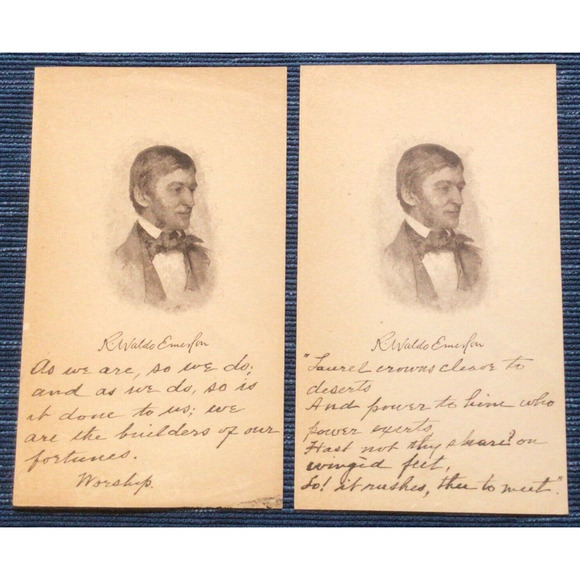 R. Waldo Emerson
As we are, so we do;
and as we do, so is
it done to us; we
are the builders of our
fortunes.
Worship.
R. Waldo Emerson
"Laurel crowns cleave to
deserts
And power to him who
power exerts,
Hast not thy share? on
winged feet,
Lo! it rushes, thee to meet."